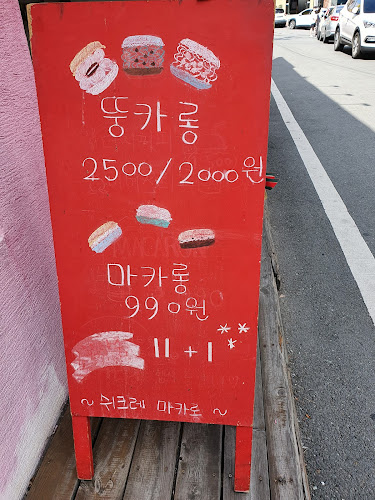 뚱카롱
2500/2000원
마카롱
990원
11+1
~ 쉬크레 마카롱 ~